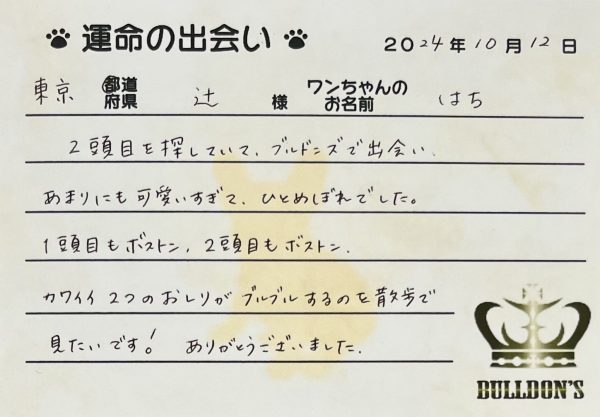 運命の出会い 2024年10月12日
東京 都道府県 辻 様 ワンちゃんのお名前 はち
2頭目を探していて、ブルドンズで出会い、
あまりにも可愛いすぎて、ひとめぼれでした。
1頭目もボストン、2頭目もボストン、
カワイイ2つのおしりがブルブルするのを散歩で
見たいです! ありがとうございました。
BULLDON'S